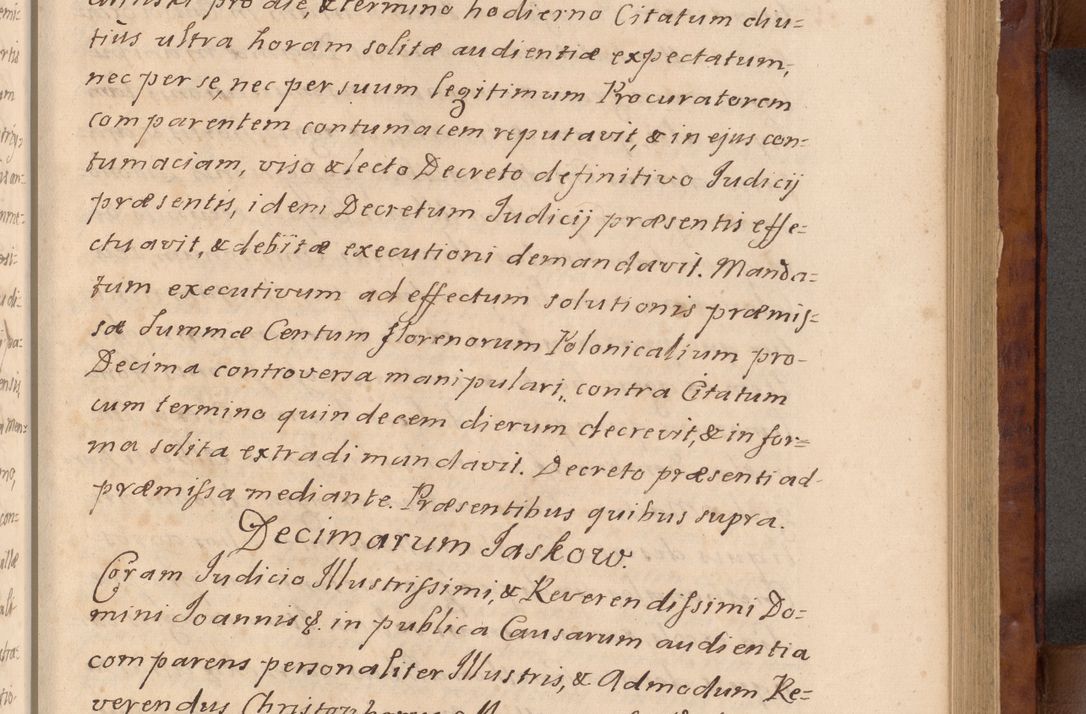 pro die, & termino hodierno Citatum diu=
tius ultra horam solitæ audientiæ expectatum,
nec per se, nec per suum legitimum Procuratorem
comparentem contumacem reputavit, & in ejus con=
tumaciam, viso & lecto Decreto definitivo Judicij
præsentis, idem Decretum Judicij præsentis effe=
ctuavit, & debitæ executioni demandavit. Manda=
tum executivum ad effectum solutionis præmis=
sæ summæ Centum florenorum Polonicalium pro-
Decima controversa manipulari, contra Citatum
cum termino quindecem dierum decrevit, & in for=
ma solita extradi mandavit. Decreto præsenti ad-
præmissa mediante. Præsentibus quibus supra.
Decimarum Jaskow.
Coram Judicio Illustrissimi, & Reverendissimi Do=
mini Joannis &. in publica Causarum audientia
comparens personaliter Illustris, & Admodum Re=
verendus Christophorus